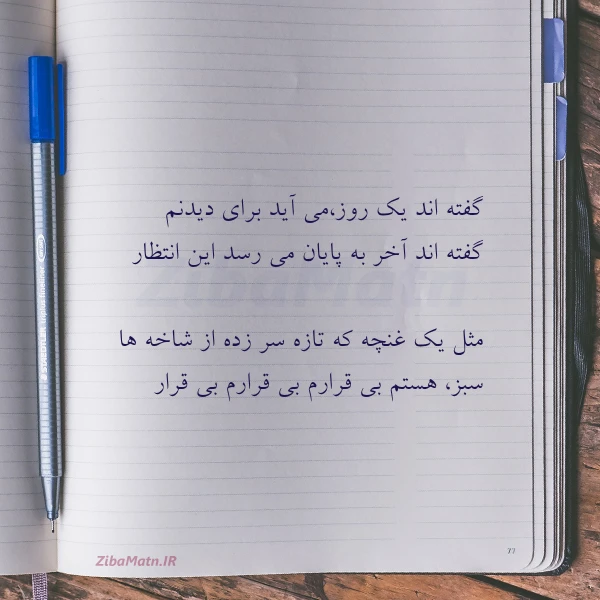 گفته اند یک روز،می آید برای دیدنم
گفته اند آخر به پایان می رسد این انتظار
ZibaMatn
مثل یک غنچه که تازه سر زده از شاخه ها
سبز، هستم بی قرارم بی قرارم بی قرار
ZibaMatn.IR